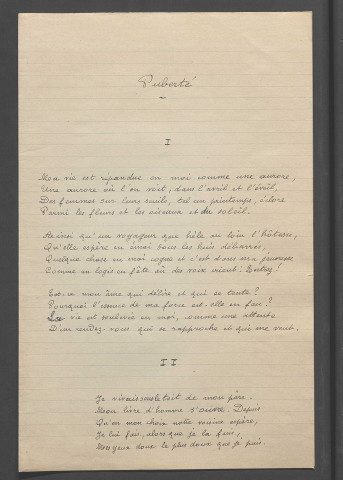 Puberté
I
Ma vie est répandue en moi comme une aurore,
Une aurore où l'on voit, dans l'avril et l'éveil,
Des femmes sur leurs seuils, tel un printemps, éclore
Parmi les fleurs et les oiseaux et du soleil.
Ainsi qu'un voyageur que hèle au loin l'hôtesse,
Qu'elle espère en émoi sous les huis débarrés,
Quelque chose en moi cogne et c'est dans ma jeunesse
Comme un logis en fête où des voix crient : Entrez!
Est-ce mon âme qui délire et qui se tente?
Pourquoi l'essence de ma force est-elle en feu?
La vie est soulevée en moi, comme une attente
D'un rendez-vous qui se rapproche et qui me veut.
II
Je vivais de mon père.
Mon livre d'homme s'ouvre. Depuis
Qu'en mon choix notre voisine espère,
Je lui fais, alors que je la fuis,
Mes yeux doux le plus doux que je puis.